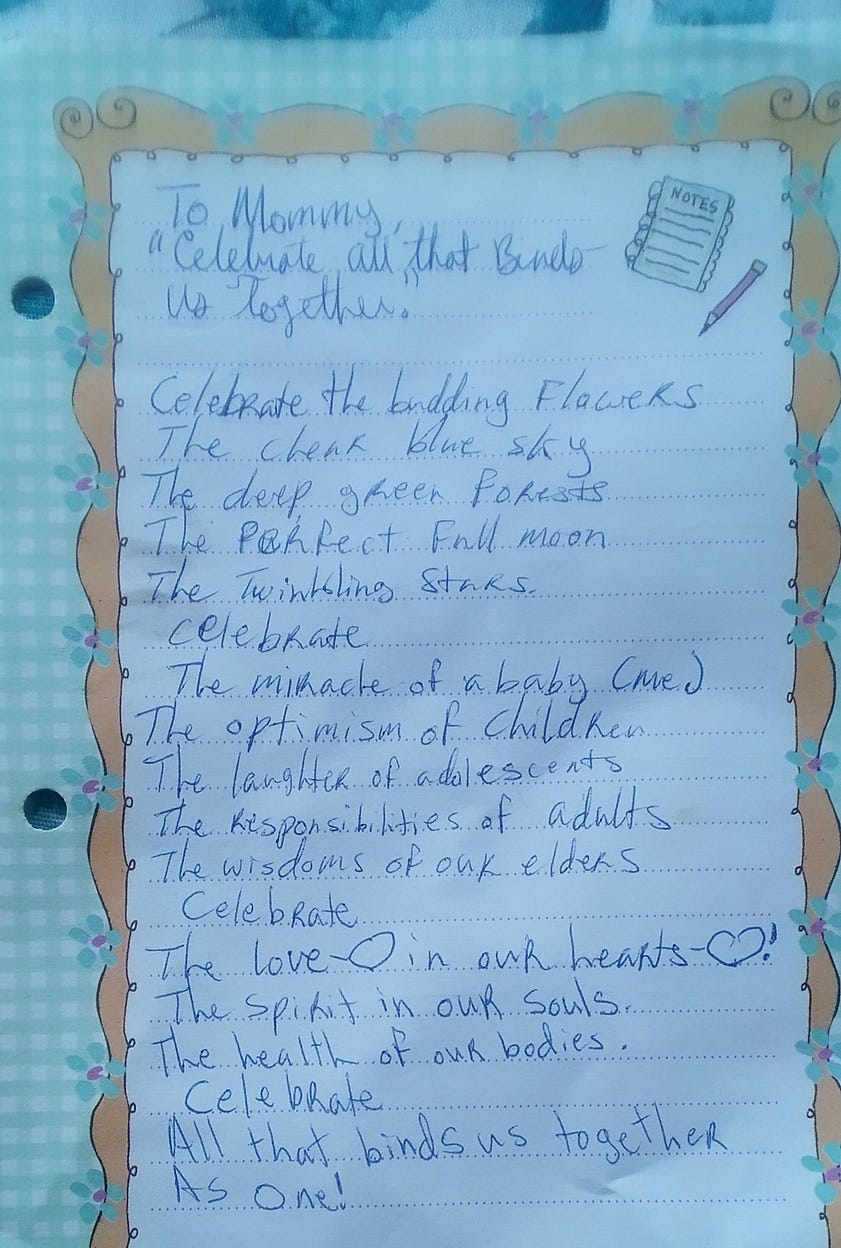 NOTES
To Mommy,
"Celebrate all that Binds
Us Together."
Celebrate the budding Flowers
The clear blue sky
The deep green Forests
The Perfect Full moon
The Twinkling Stars.
Celebrate
The miracle of a baby (me)
The optimism of Children
The laughter of adolescents
The Responsibilities of adults
The wisdoms of our elders
Celebrate
The love-♡ in our hearts-♡!
The spirit in our Souls.
The health of our bodies.
Celebrate
All that binds us together
As One!